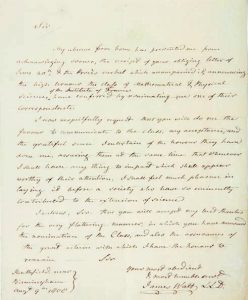 Sir
My absence from home has prevented me from
acknowledging sooner, the receipt of your obliging letter of
June 20th & the Procès verbal which accompanied it, announcing
the high honour the class of Mathematical & Physical
of the Institute of France
Sciences, have conferred by nominating me one of their
Correspondents.
I now respectfully request that you will do me the
favour to communicate to the Class, my acceptance, and
the grateful sense I entertain of the honour they have
done me, assuring them at the same time that whenever
I shall have any thing to impart which shall appear
worthy of their attention, I shall feel much pleasure in
laying it before a society who have so eminently
contributed to the extension of science
I entreat, Sir, that you will accept my best thanks
for the very flattering manner, in which you have announced
the nomination of the Class, and also the assurances of
the great esteem with which I have the honour to
remain Sir
Your most obedient
& most humble servt
James Watt, LLD.
Heathfield near
Birmingham
Augt 9th 1808